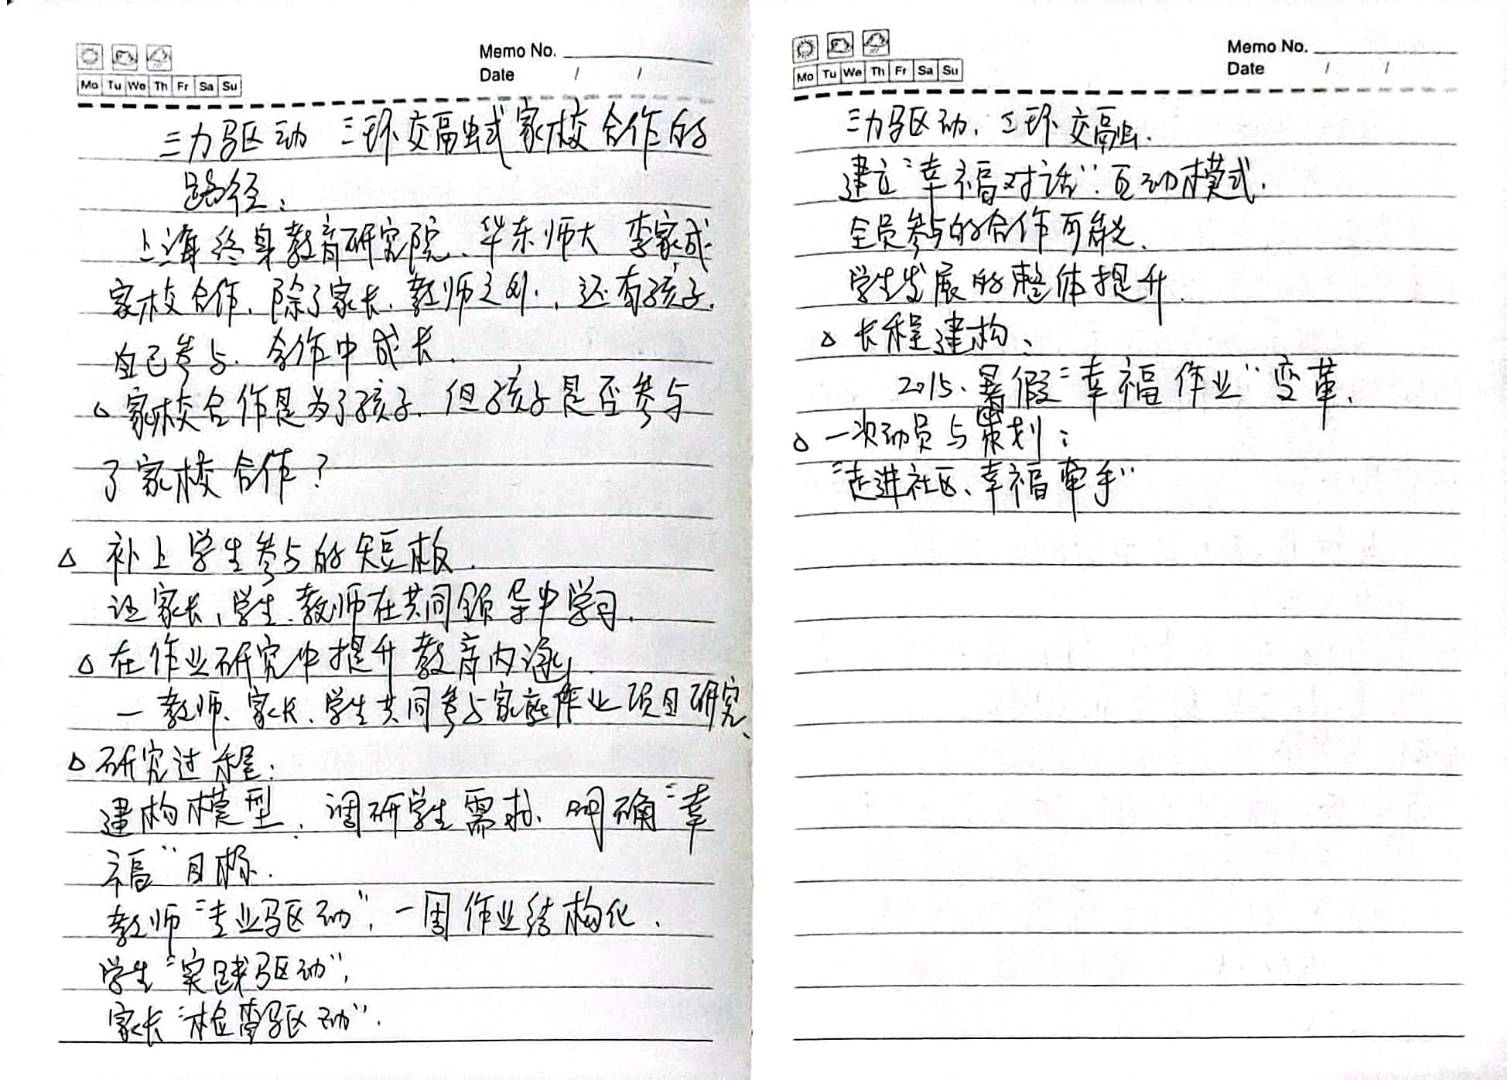 Memo No.
Date / /
Mo Tu We Th Fr Sa Su
三力驱动 三环交融式家校合作的
路径:
上海终身教育研究院、华东师大 李家成
家校合作,除了家长、教师之外,还有孩子.
自己参与、合作中成长.
△ 家校合作是为了孩子.但孩子是否参与
了家校合作?
△ 补上学生参与的短板.
让家长,学生、教师在共同领导中学习.
△ 在作业研究中提升教育内涵
一教师、家长、学生共同参与家庭作业项目研究、
△ 研究过程:
建构模型、调研学生需求、明确“幸
福”目标.
教师“专业驱动”,一周作业结构化.
学生“实践驱动”,
家长“检查驱动”.
Memo No.
Date / /
Mo Tu We Th Fr Sa Su
三力驱动、三环交融.
建立“幸福对话”互动模式.
全员参与的合作可能.
学生发展的整体提升.
△ 长程建构、
2015.暑假“幸福作业”变革.
△ 一次动员与策划:
“走进社区、幸福牵手”